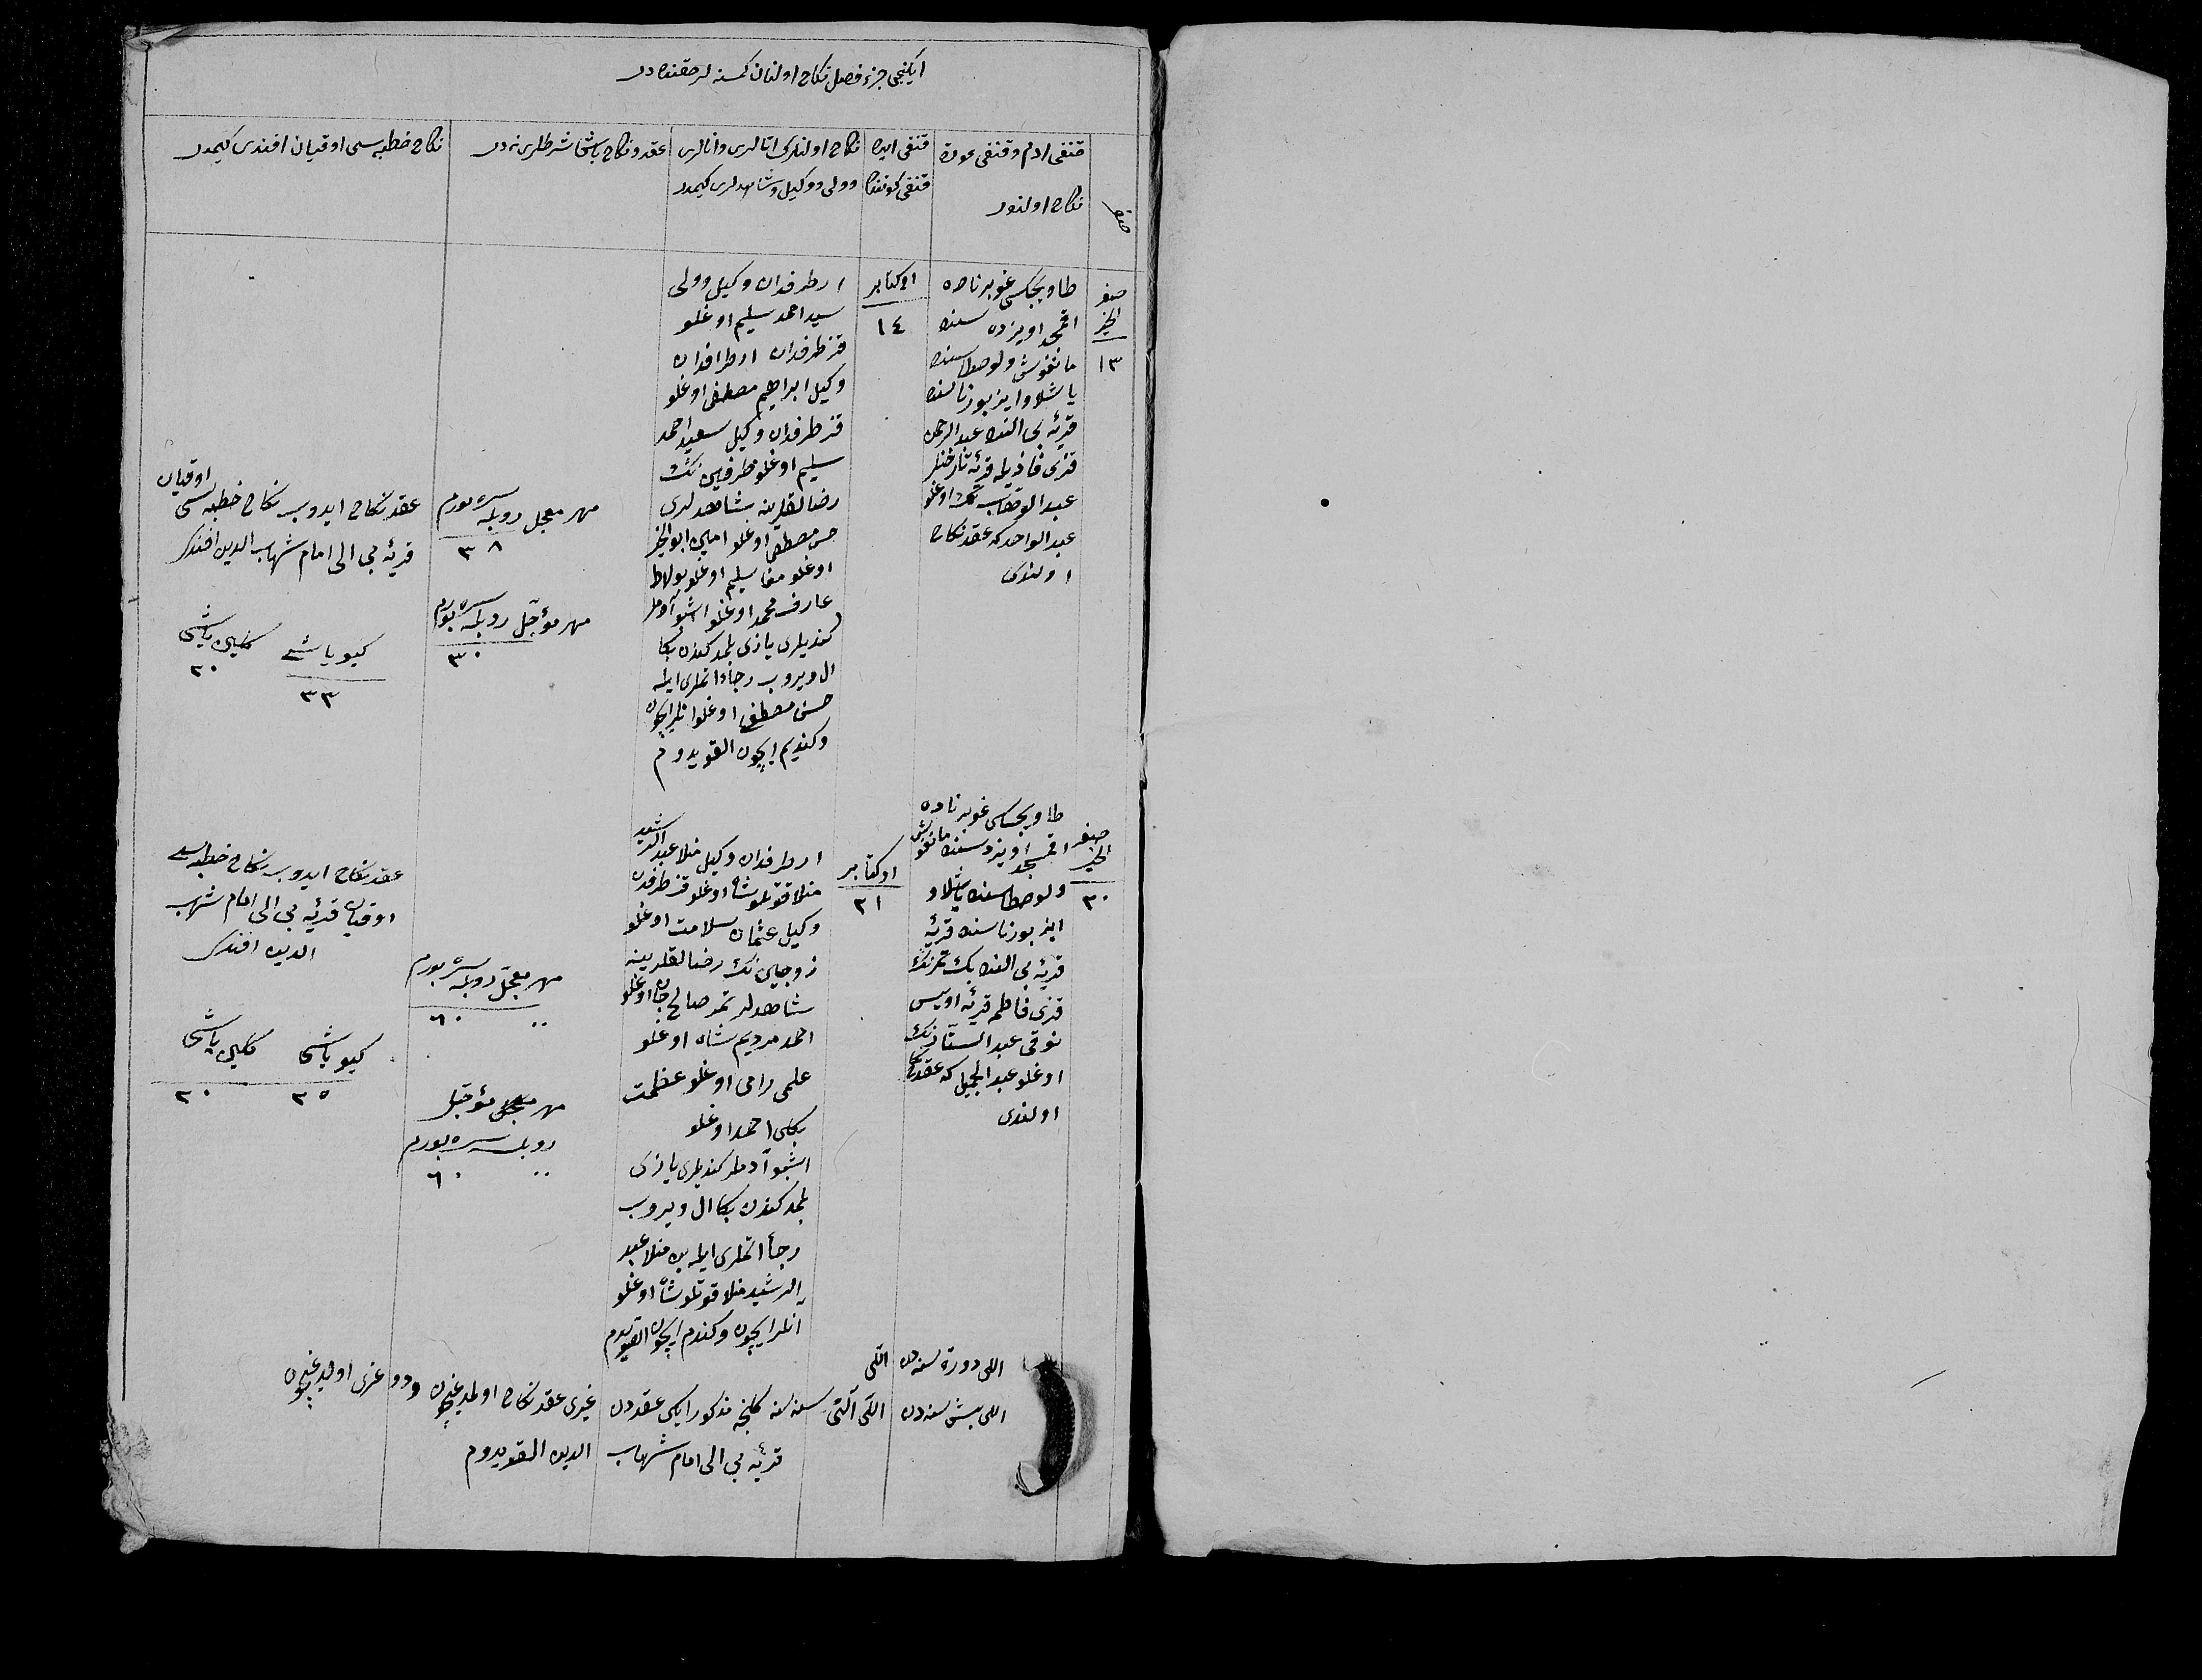 ایکنجی جزء فصل نکاح اولنان کمسنه لر حقنده در
قنغی ادم و قنغی عورة
نکاح اولنور
قنغی ایده
قنغی کونده
نکاح اولنلرنک اتالری وانالری
وولی ووکیل وشاهدلری کیمدر
عقد ونکاح باشقا شرطلری نه در
نکاح خطبه سی اوقیان افندی کیمدر
صفر
الخیر
١٣
طاویچسکی غوبیرناده
اویزده سنده
مانغوش ولوصطا سنده
یاشلاو ایزبوزنا سنده
قریۀ بی الفده عبد الرحمن
قزی
عبد الوهاب نک اوغلو
عبد الواحد که عقد نکاح
اولندی
اوکتابر
١٤
ار طرفدان وکیل وولی
سید احمد سلیم اوغلو
قز طرفدان ار طرافدان
وکیل ابراهیم مصطفی اوغلو
قز طرفدان وکیل سعید احمد
سلیم اوغلو طرفین نک
رضالقلرینه شاهدلری
حسن مصطفی اوغلو امین ابو الخیر
اوغلو سلیم اوغلو
عارف محمد اوغلو اشبو آدملر
کندیلری یازی بلمدکندن بکا
ال ویروب رجاء اتملری ایله
حسن مصطفی اوغلو انلر ایچون
وکندیم ایچون القویدوم
مهر معجل روبله سره بورم
٣٨
مهر مؤجل روبله سره بورم
٣٠
عقد نکاح ایدوب نکاح خطبه سی اوقیان
قریۀ بی الی امام شهاب الدین افندی
کیو یاشی
٣٣
کلین یاشی
٢٠
صفر
الخیر
٣٠
طاویچسکی غوبیرناده
اویزد سنده مانغوش
ولوصطا سنده یاشلاو
ایزبوزنا سنده قریۀ
قریۀ بی الفده بک تمرنک
قزی فاطمه قریۀ اویس
نوقی عبد الستار نک
اوغلو عبد الجمیل که عقد نکاح
اولندی
اوکتابر
٣١
ار طرفدان وکیل منلا عبد الرشید
منلا قوتلوشاه اوغلو قز طرفدن
وکیل عثمان سلامت اوغلو
زوجین نک رضالقلرینه
شاهدلر تمر صالح جان اوغلو
احمد مردیم شاه اوغلو
علمی رامی اوغلو عظمت
بکلی احمد اوغلو
اشبو آدملر کندیلری یازی
بلمدکندن بکا ال ویروب
رجاء اتملری ایله بن منلا عبد
الرشید منلا قوتلوشاه اوغلو
آنلر ایچون وکندم ایچون القویدم
مهر معجل روبله سره بورم
٦٠
مهر مؤجل
روبله سره بورم
٦٠
عقد نکاح ایدوب نکاح خطبه سی
اوقیان قریۀ بی الی امام شهاب
الدین افندی
کیو یاشی
٢٥
کلین یاشی
٢٠
اللی دورة سنه دن اللی
اللی بیش سنه دن اللی آلتی سنه سنه کلنجه مذکور ایکی عقددن غیری عقد نکاح اولمدیغیچون ودوغری اولدیغیچون
قریۀ بی الی امام شهاب الدین القویدوم